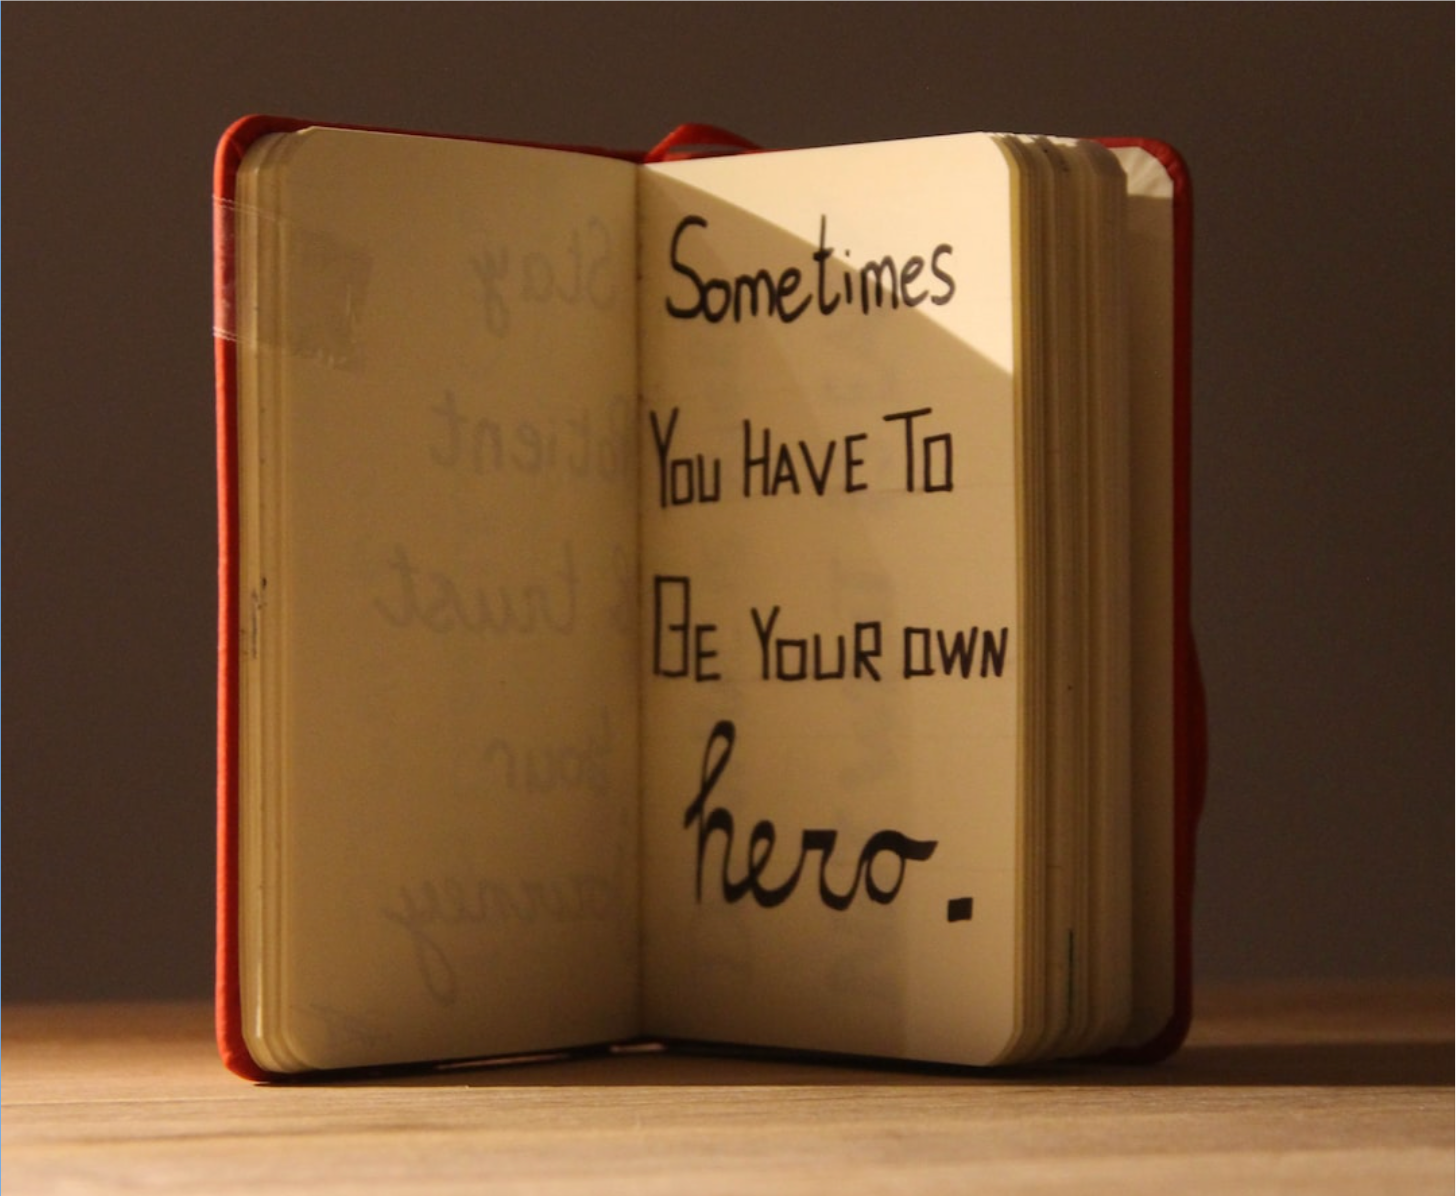 Stay
Patient
& trust
your
journey
Sometimes
You HAVE To
BE YOUR OWN
hero.